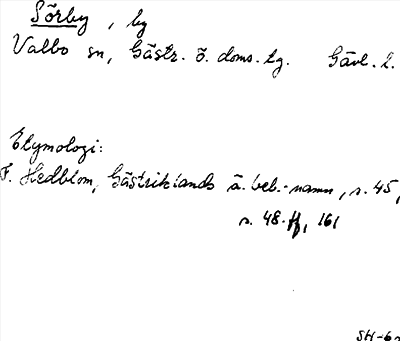 Sörby, by
Valbo sn, Gästr. ö. doms.tg. Gävl. l.
Etymologi:
F. Hedblom, Gästriklands ä. beb.-namn, s. 45,
s. 48 ff, 161